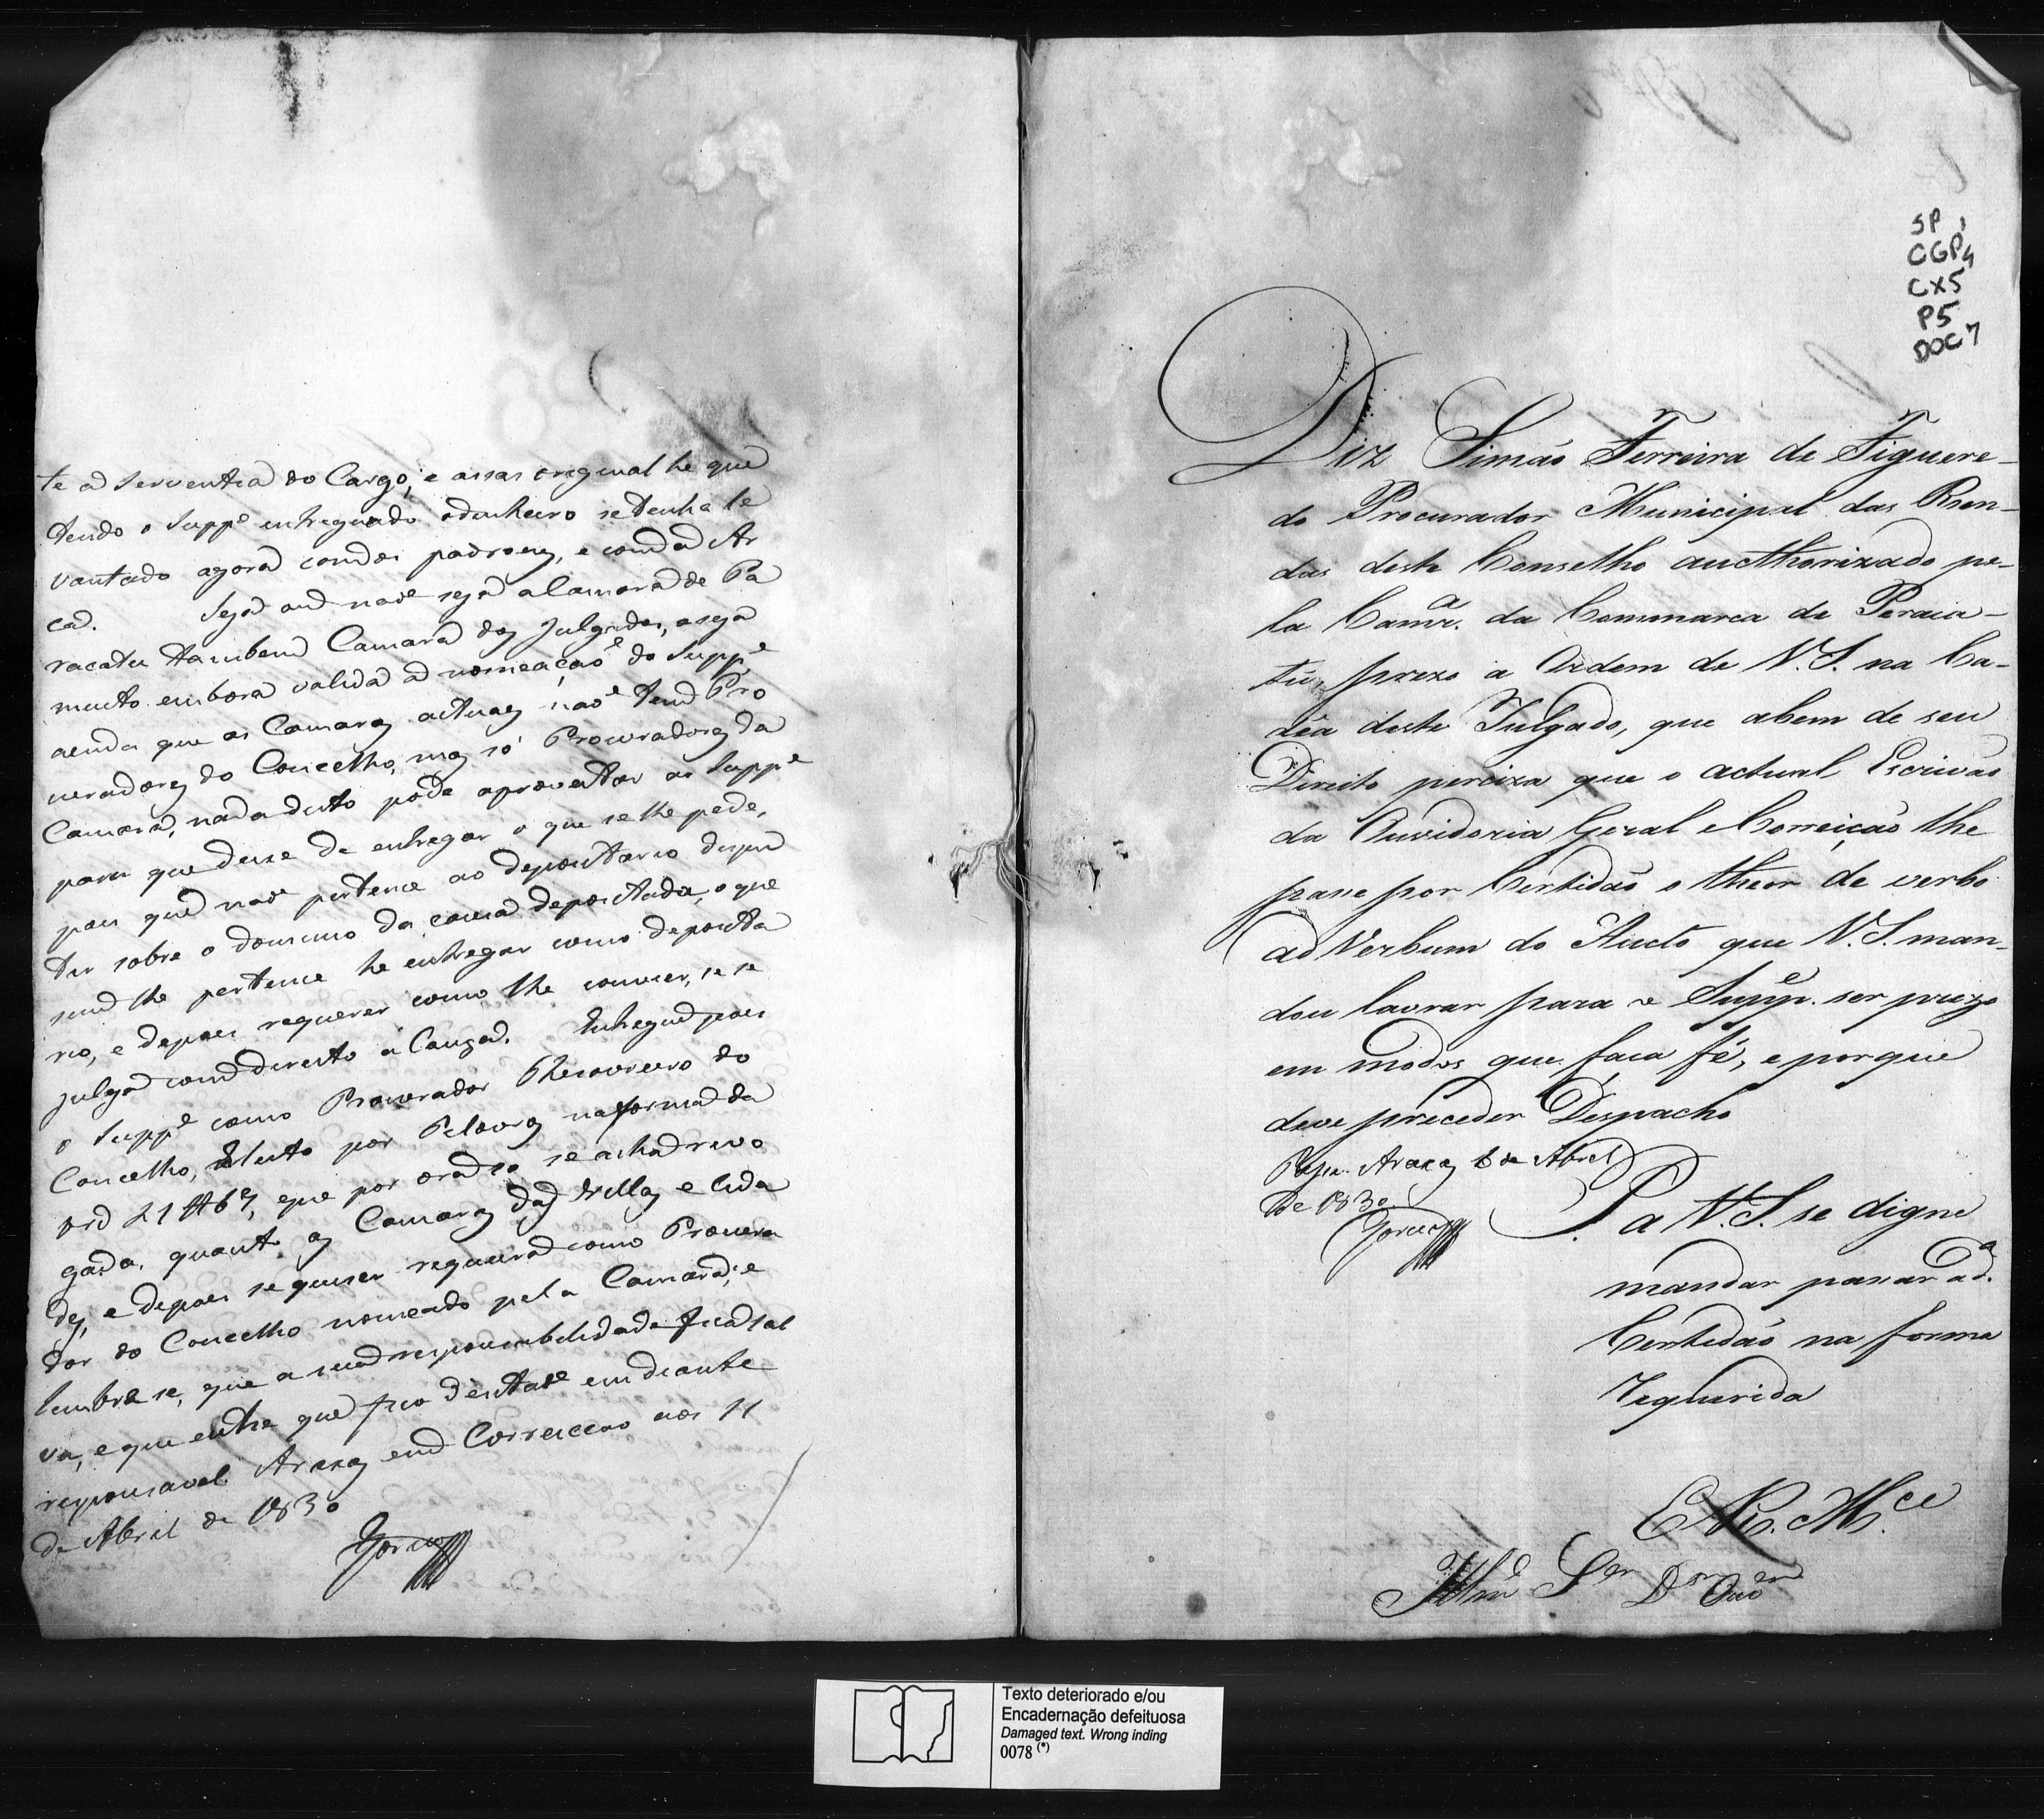 te a serventia do Cargo, e assas original he que
tendo o Suppe entreguado o dinheiro se tenha le
vantado agora com dois padroens, e com a Ar
ca. Seja ou naõ seja a Camara de Pa
racatu tambem Camara dos Julgados, e seja
muito embora valida a nomeaçaõ do Suppe
ainda que as Camaras actuaes naõ tem Pro
curadores do Concelho, mas só Procuradores da
Camara, nada disto pode aproveitar ao Suppe
para que deixe de entregar o que se lhe pede,
pois que naõ pertence ao depositario dispu
tar sobre o dominio da couza depositada, o que
sim lhe pertence he entregar como deposita
rio, e depois requerer como lhe convier, se se
julga com direito a Couza. Entregue pois
o Suppe como Procurador Thesoureiro do
Concelho, Eleito por Pelouros na forma da
Ord L 1 tt 67, que por ora so se acha revo
gada, quanto as Camaras das Villas e Cida
des, e depois se quiser requeira como Procura
dor do Concelho nomeado pela Camara; e
lembre se, que a sua responsabilidade fica sal
va, e que entre que fico d'entaõ em diante
responsavel. Araxa em Correiccao aos 11
de Abril de 1830
SP 1
CGP 4
CX5
P5
DOC 7
Diz Simaõ Ferreira de Figuere-
do Procurador Municipal das Ren-
das deste Conselho aucthorizado pe-
la Camr.a da Commarca de Peraca-
tu, prezo a Ordem de V. S. na Ca-
dêa deste Julgado, que abem de seu
Direito perciza que o actual Escrivaõ
da Ouvidoria Geral e Correiçaõ lhe
passe por Certidaõ o theor de verbo
ad Verbum do Aucto que V. S. man-
dou lavrar para o Supp.e ser prezo
em modos que faca fé, e porque
deve preceder Despacho
Passe. Araxa 6 de Abril
de 1830
P. a V. S. se digne
mandar passar a d.a
Certidaõ na forma
requerida
E. R. M.ce
Illmo Snr Dr Ouvor
Texto deteriorado e/ou
Encadernação defeituosa
Damaged text. Wrong inding
0078 (*)